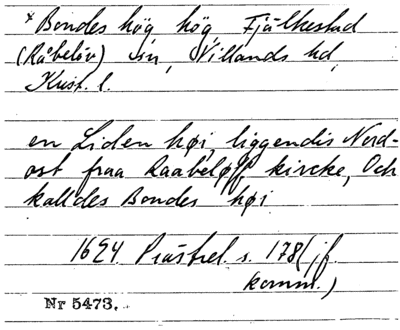 * Bondes hög, hög, Fjälkestad
(Råbelöv) sn, Villands hd,
Krist. l.
en Liden høi, liggendis Nord-
ost fraa Raabeløff kircke, Och
kalldes Bondes høi
1624. Prästrel. s. 178 (jf.
komm.)
Nr 5473.